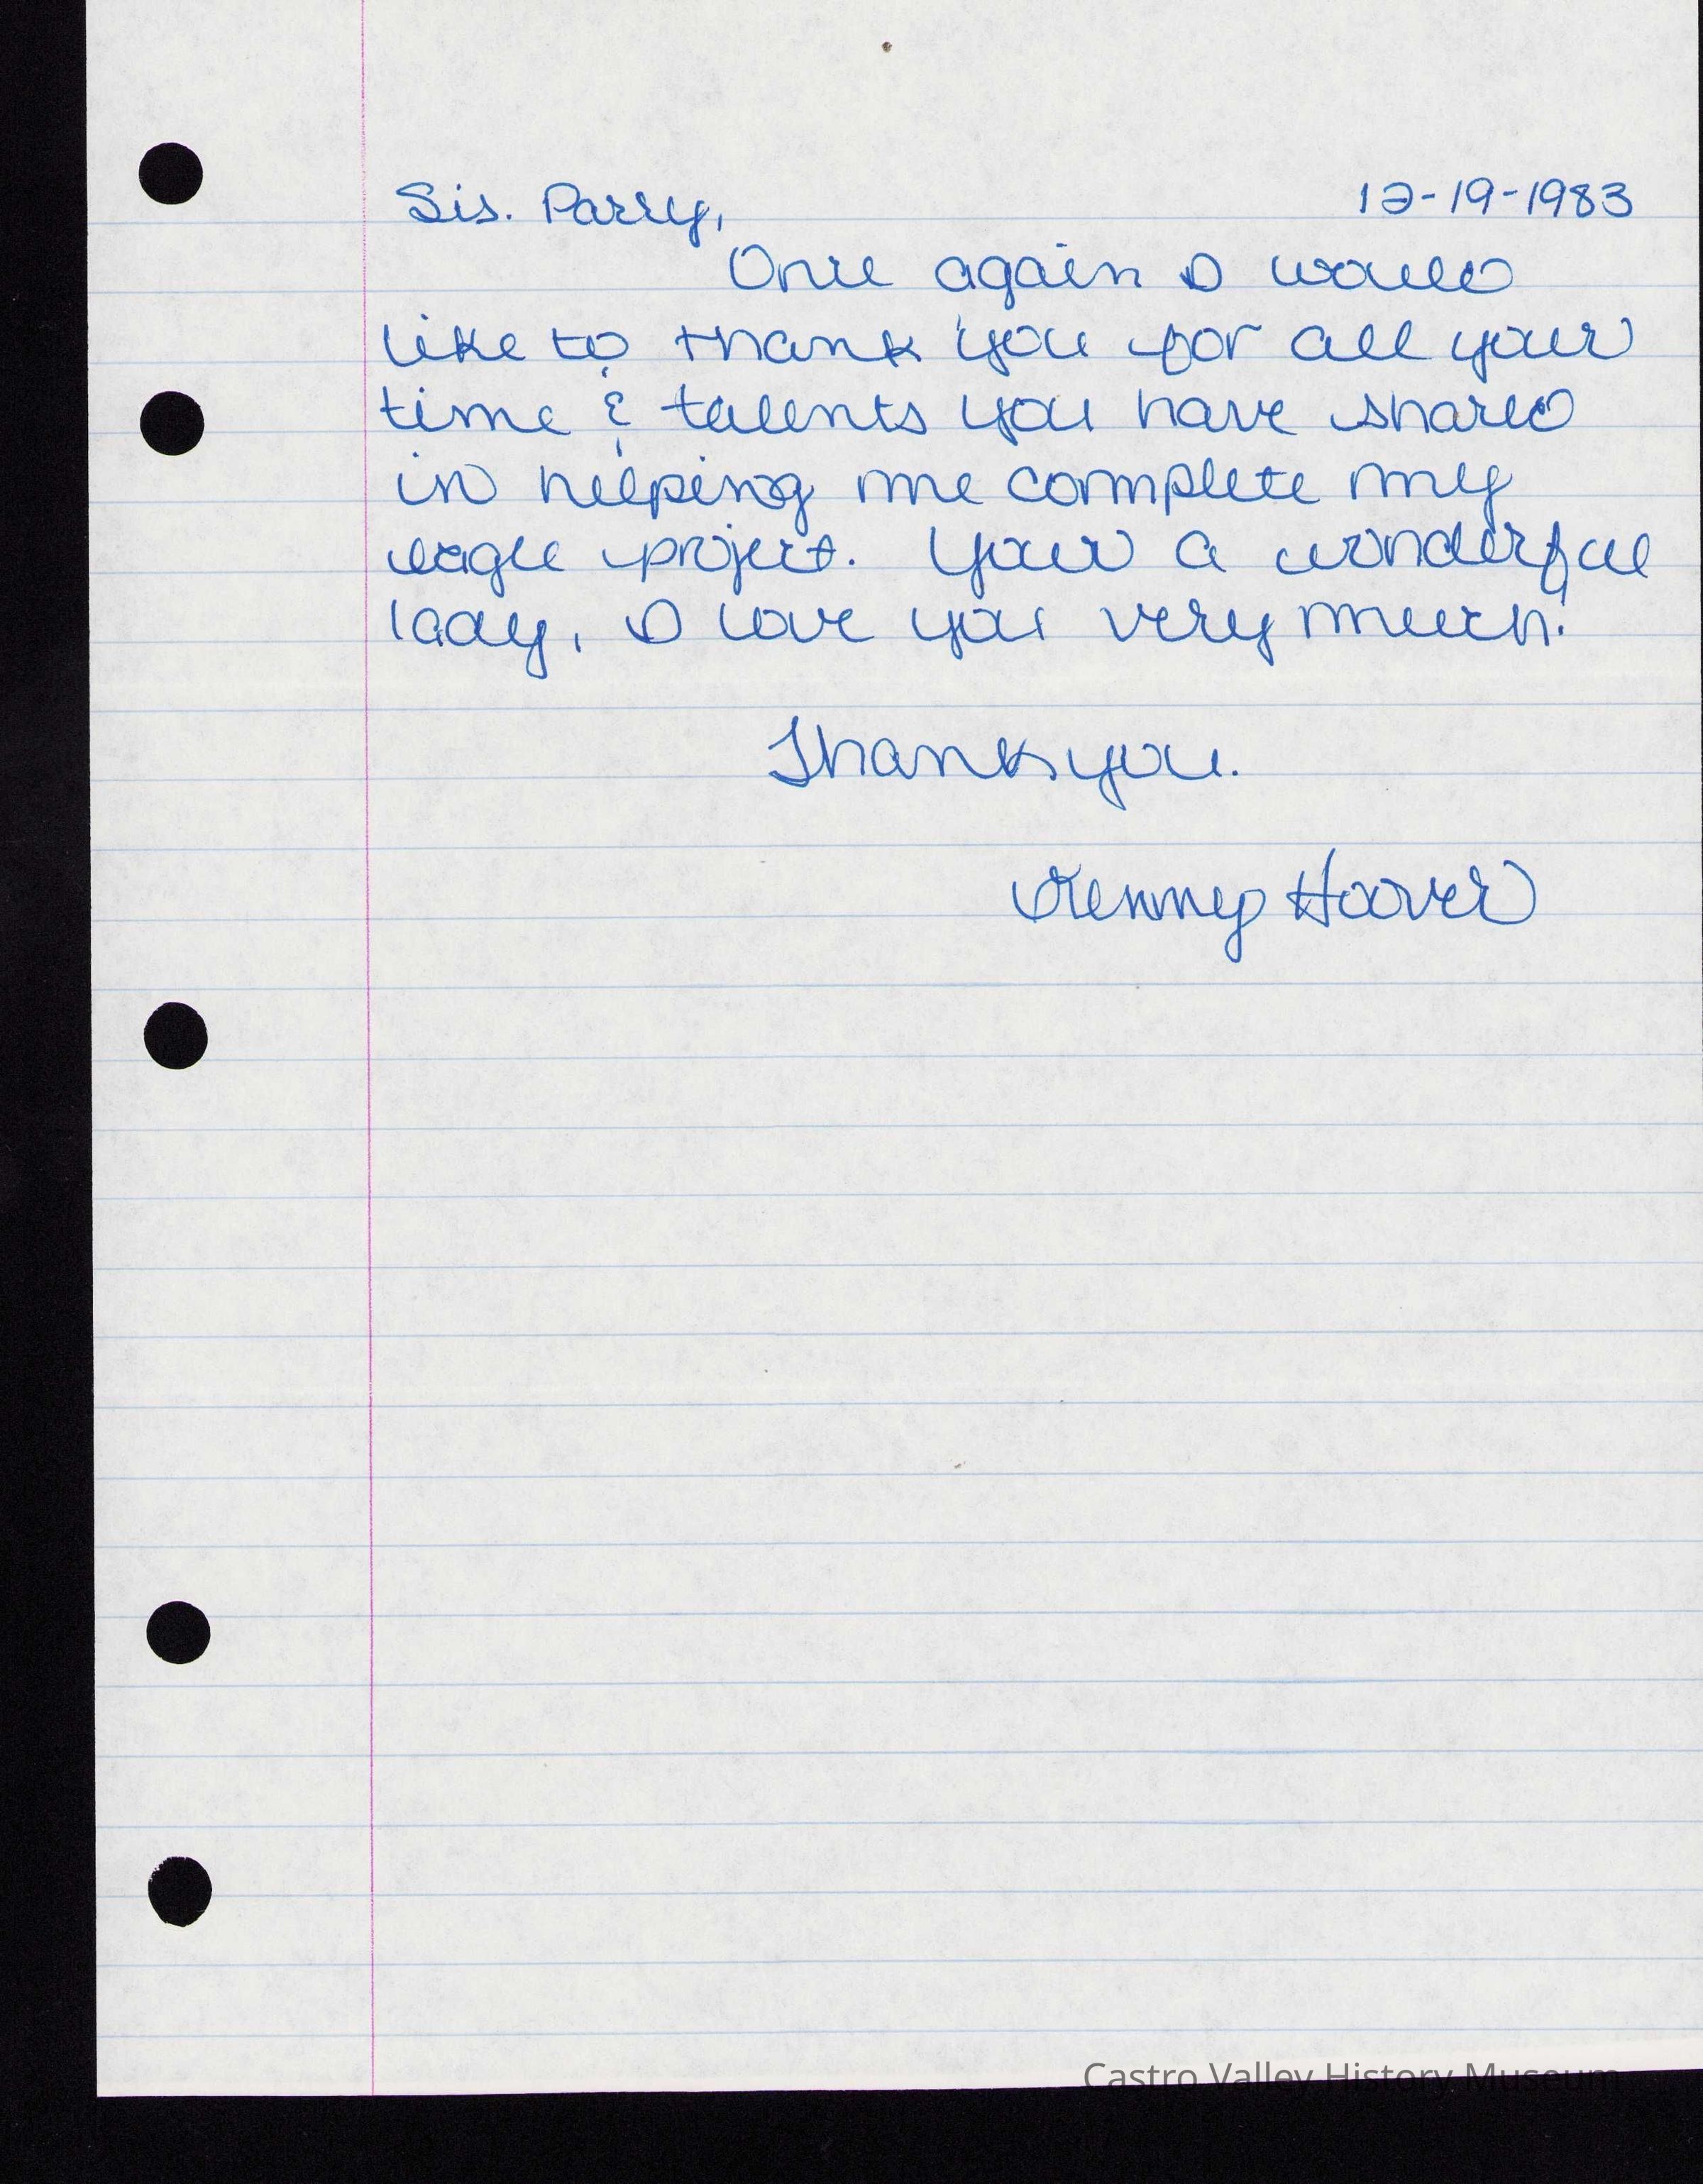 Sis. Parry, 12-19-1983
Once again I would
like to thank you for all your
time & talents you have shared
in helping me complete my
eagle project. Your a wonderful
lady, I love you very much!
Thank you.
Kenney Hoover
Castro Valley History Museum